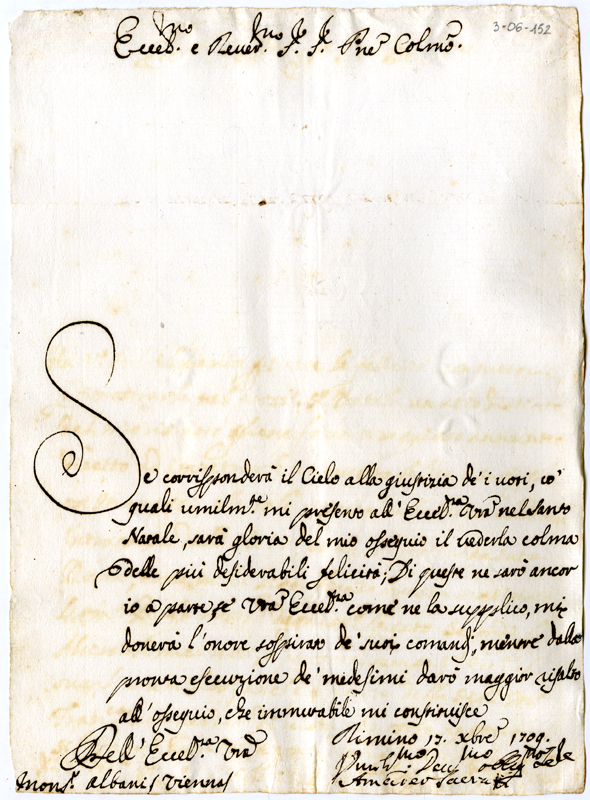 3-06-152
Ecced.mo e Rever.mo S.r S.r Pne Colmo.
Se corrisponderà il Cielo alla giustizia de'i uoti, co'
quali umilm.te mi presento all'Eccel.za Vra nel Santo
Natale, sarà gloria del mio osseguio il uederla colma
delle più desiderabili felicità; Di queste ne sarò ancor
io a parte, se Vra Eccel.za come ne la supplico, mi
donerà l'onore sospirato de' suoi comandi, mentre dalla
pronta esecuzione de' medesimi darò maggior risalto
all'osseguio, che immutabile mi constituisce
Dell'Eccel.za Vra
Rimino 17. Xbre 1709.
Mons.r Albani Vienna